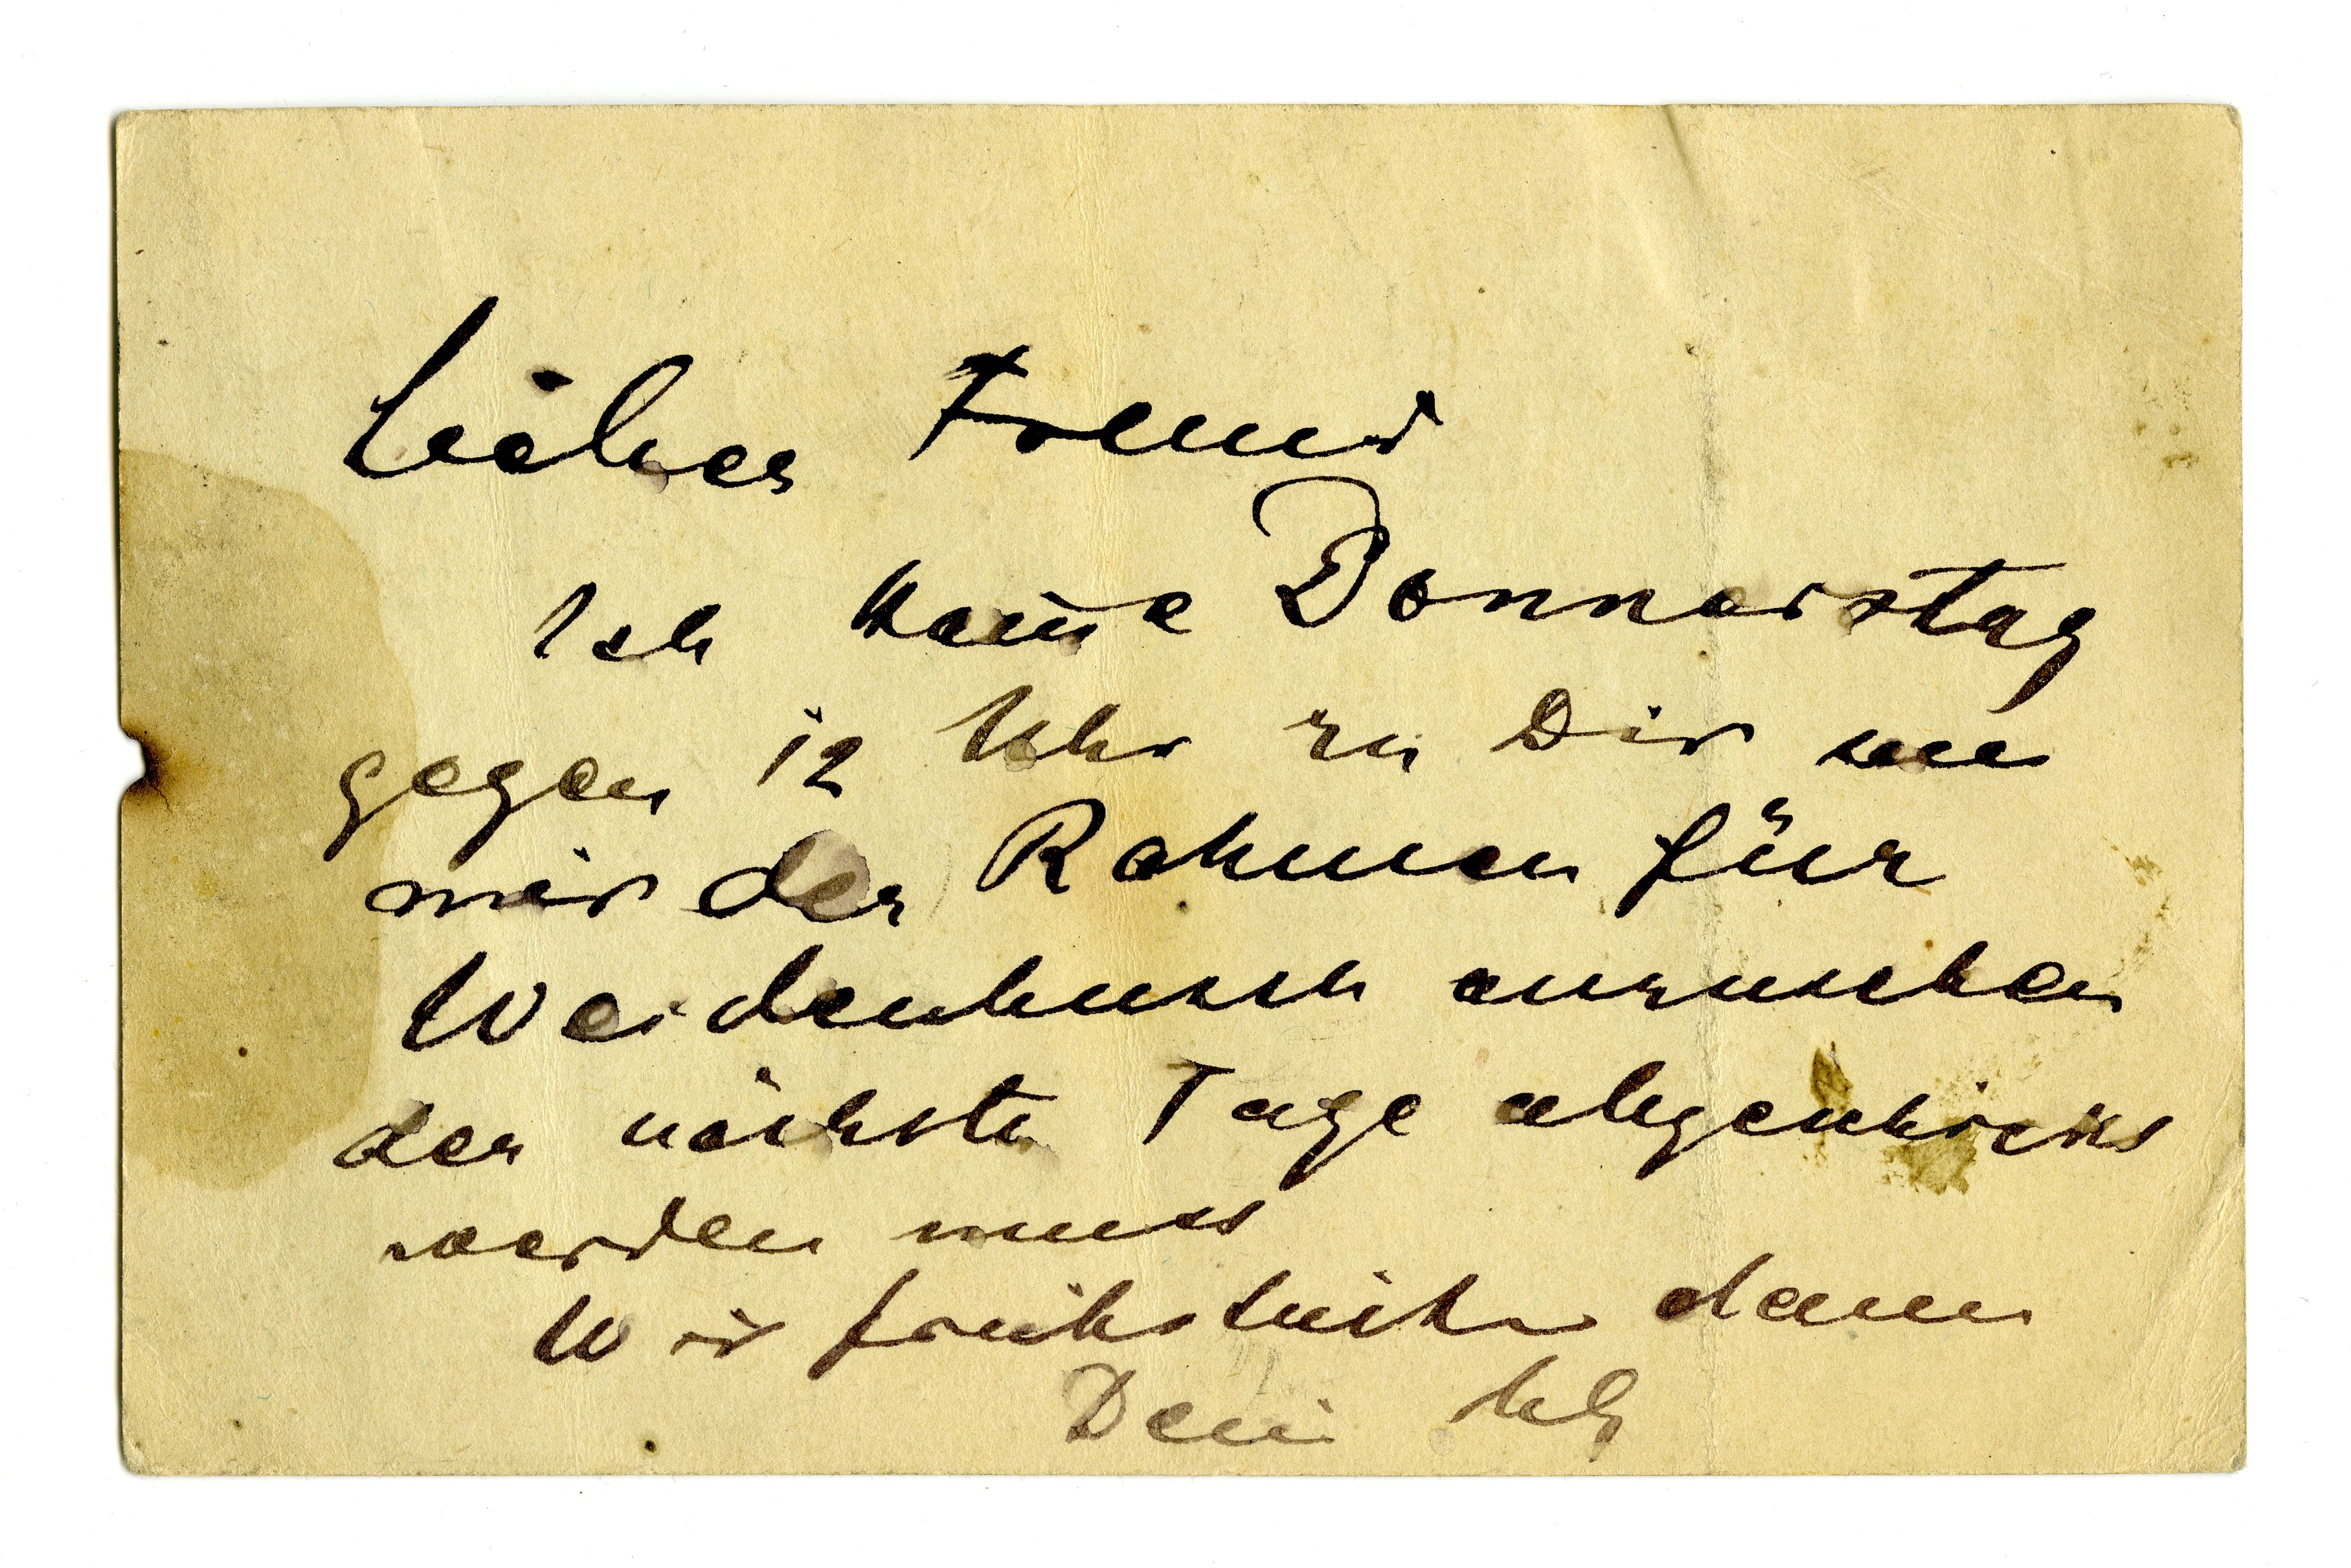 Lieber Freund
Ich kom̅e Donnerstag
gegen 12 Uhr zu Dir um
mir den Rahmen für
Weidenbusch anzusehen
der nächste Tage abgeschickt
werden muss
Wir frühstücken dann
Dein